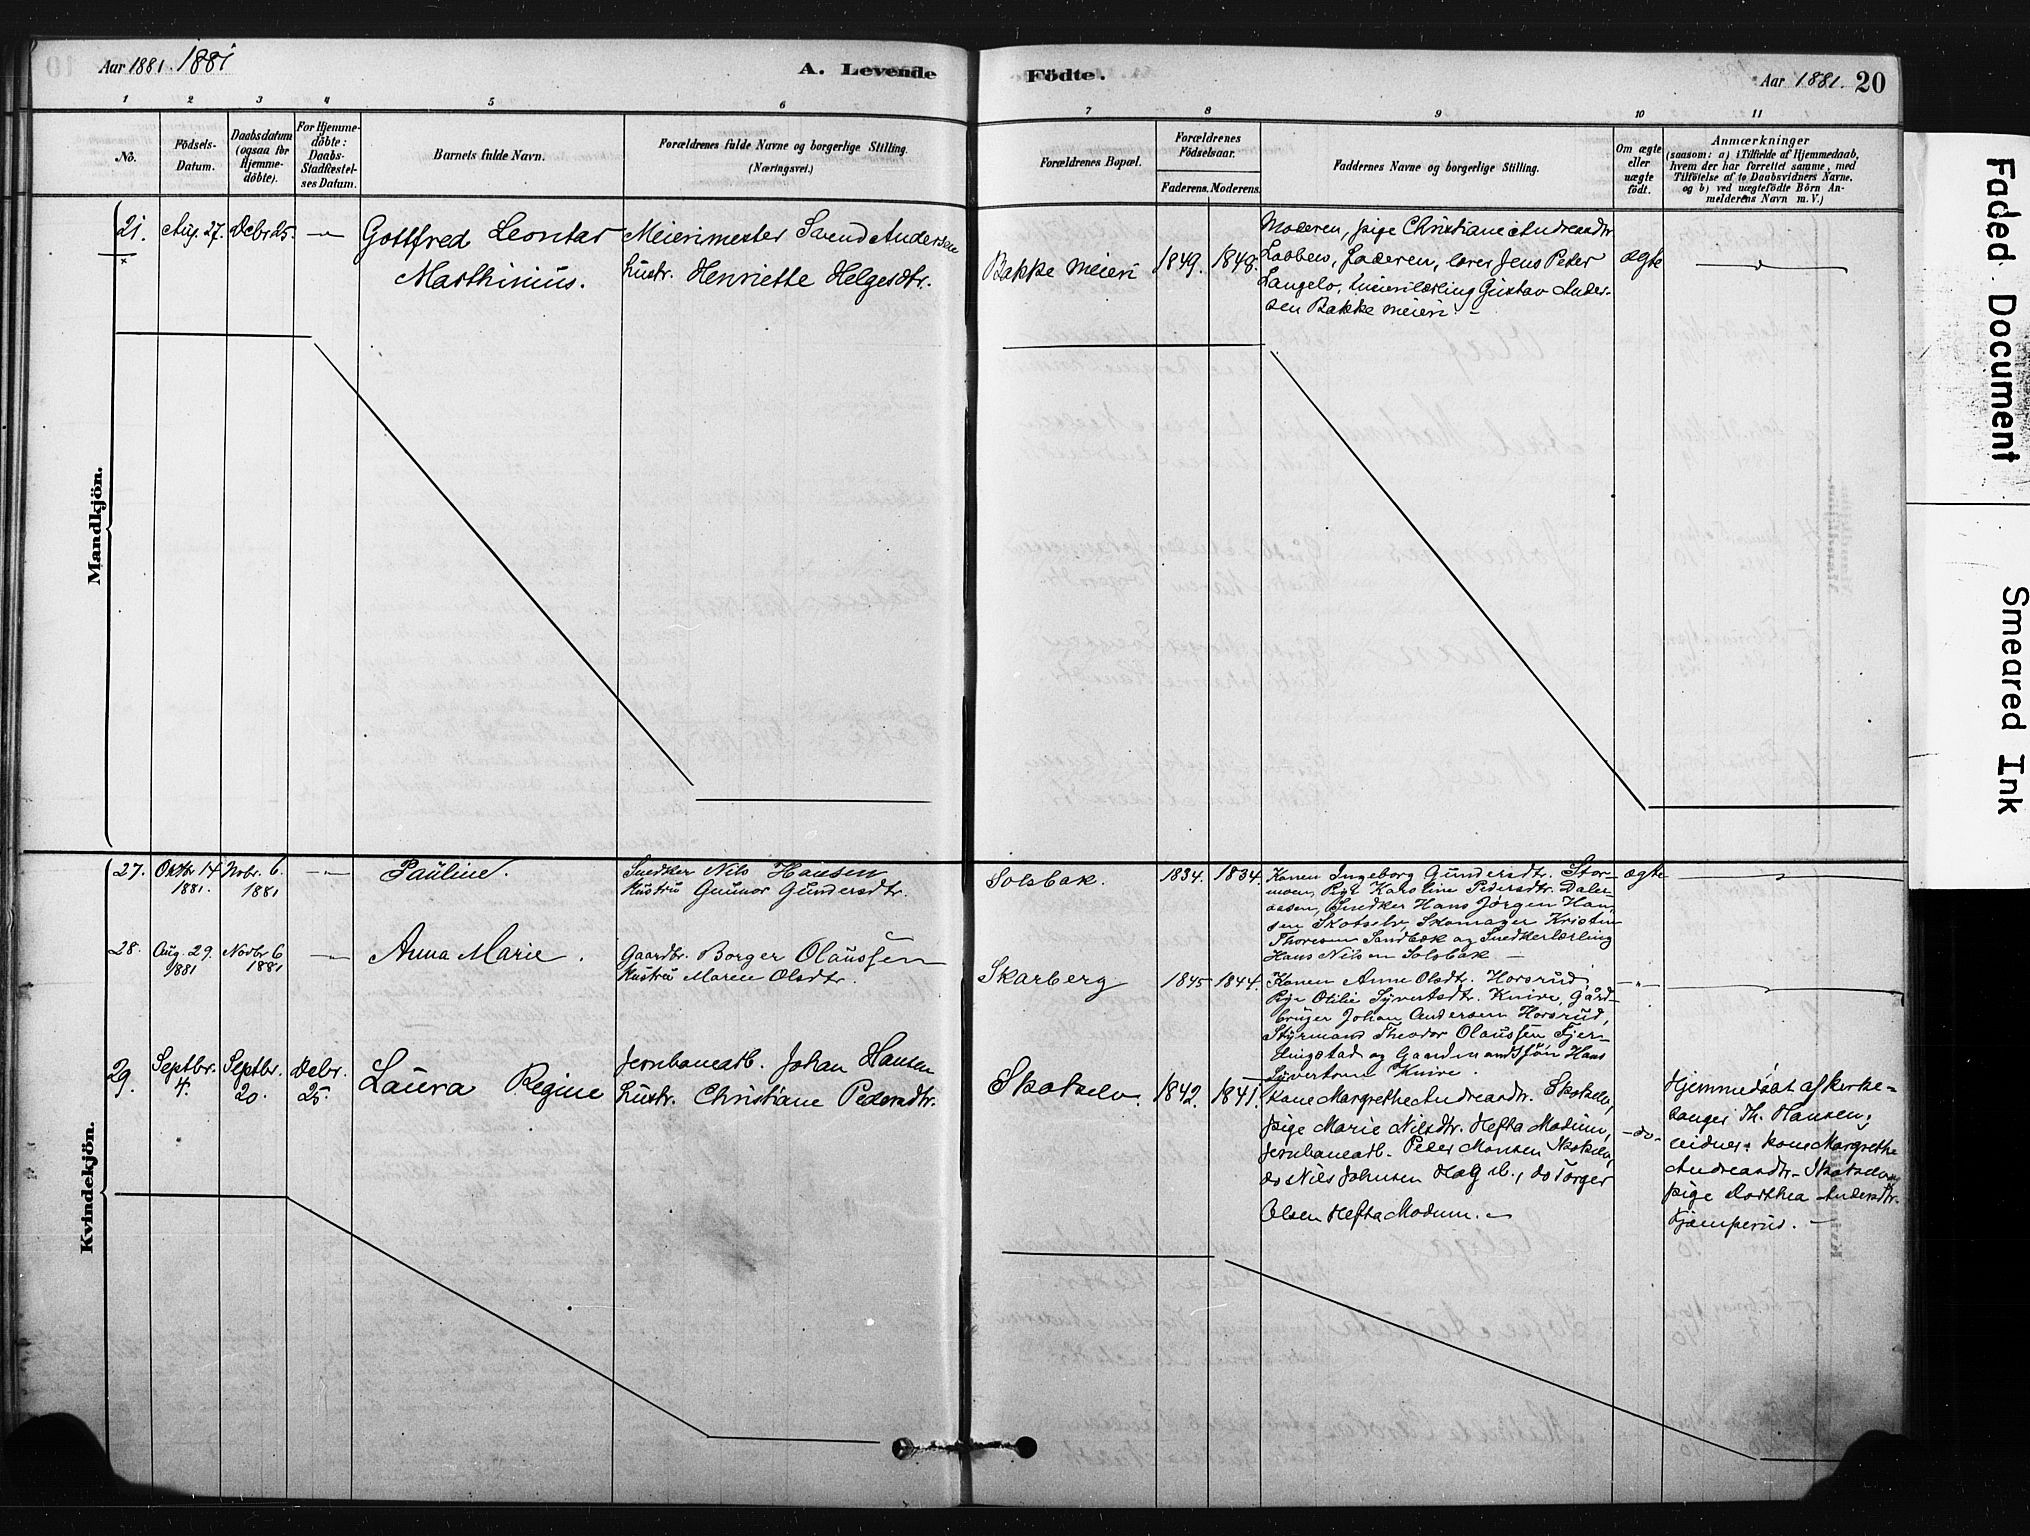 Aar 1881. 1881
A. Levende Födte.
Aar 1881. 20
1 2 3 4 5 6 7 8 9 10 11
No.
Födsels-
Datum.
Daabsdatum
(ogsaa for
Hjemme-
döbte).
For Hjemme-
döbte:
Daabs-
Stadfæstel-
ses Datum.
Barnets fulde Navn.
Forældrenes fulde Navne og borgerlige Stilling.
(Næringsvei.)
Forældrenes Bopæl.
Forældrenes
Födselsaar.
Faderens. Moderens.
Faddernes Navne og borgerlige Stilling.
Om ægte
eller
uægte
födt.
Anmærkninger
(saasom: a) i Tilfælde af Hjemmedaab,
hvem der har forrettet samme, med
Tilföielse af to Daabsvidners Navne,
og b) ved uægtefödte Börn An-
melderens Navn m. V.)
Mandkjön.
21. Aug. 27. Debr 25. —
Gottfred Leontas
Marthinius.
Meierimester Svend Andersen
hustr. Henriette Helgesdtr.
Bakke meieri 1849. 1848.
Moderen, pige Christiane Andreasdtr
Labbens, faderen, lærer Jens Peter
Langelo, meierilærling Gustav Ander-
sen Bakke meieri. —
ægte —
Kvindekjön.
27. Oktbr 14 Nvbr. 6. —
1881. 1881
Pauline.
Snedker Nils Hansen
Hustru Gunnor Gundersdtr.
Solsbak. 1834. 1834.
Konen Ingeborg Gundersdtr. Stor-
moen, Pige Karoline Pedersdtr. Daler-
aasen, Snedker Hans Jørgen Han-
sen Skotselv, Skomager Kristian
Thoresen Sandbæk og Snedkerlærling
Hans Nilsen Solsbak —
ægte —
28. Aug. 29. Novbr 6 —
1881 1881
Anna Marie.
Gaardbr. Borger Olaussen
Hustru Maren Olsdtr.
Skarberg 1845 1844.
Konen Anne Olsdtr. Horsrud,
Pige Otilie Syvertsdtr. Knive, Gård-
bruger Johan Andersen Horsrud,
Styrmand Theodor Olaussen Fjer-
dingstad og Gaardmandssøn Hans
Syvertsen Knive.
— " —
29. Septbr. 4. Septbr. 20. Debr. 25.
Laura Regine
Jernbanearb. Johan Hansen
hustr. Christiane Pedersdtr.
Skotselv. 1842. 1841.
Kone Margrethe Andreasdtr. Skotselv,
pige Marie Nilsdtr. Hefta Modum,
Jernbanearb. Peter Monsen Skotselv,
do Nils Johnsen Hag ib., do Torger
Olsen Hefta Modum. —
- do -
Hjemmedøbt af kirke-
sanger Th. Hansen;
vidner: kone Margrethe
Andreasdtr. Skotselv og
pige Dorthea Andersdtr.
Kjæmperud. —
Faded Document
Smeared Ink